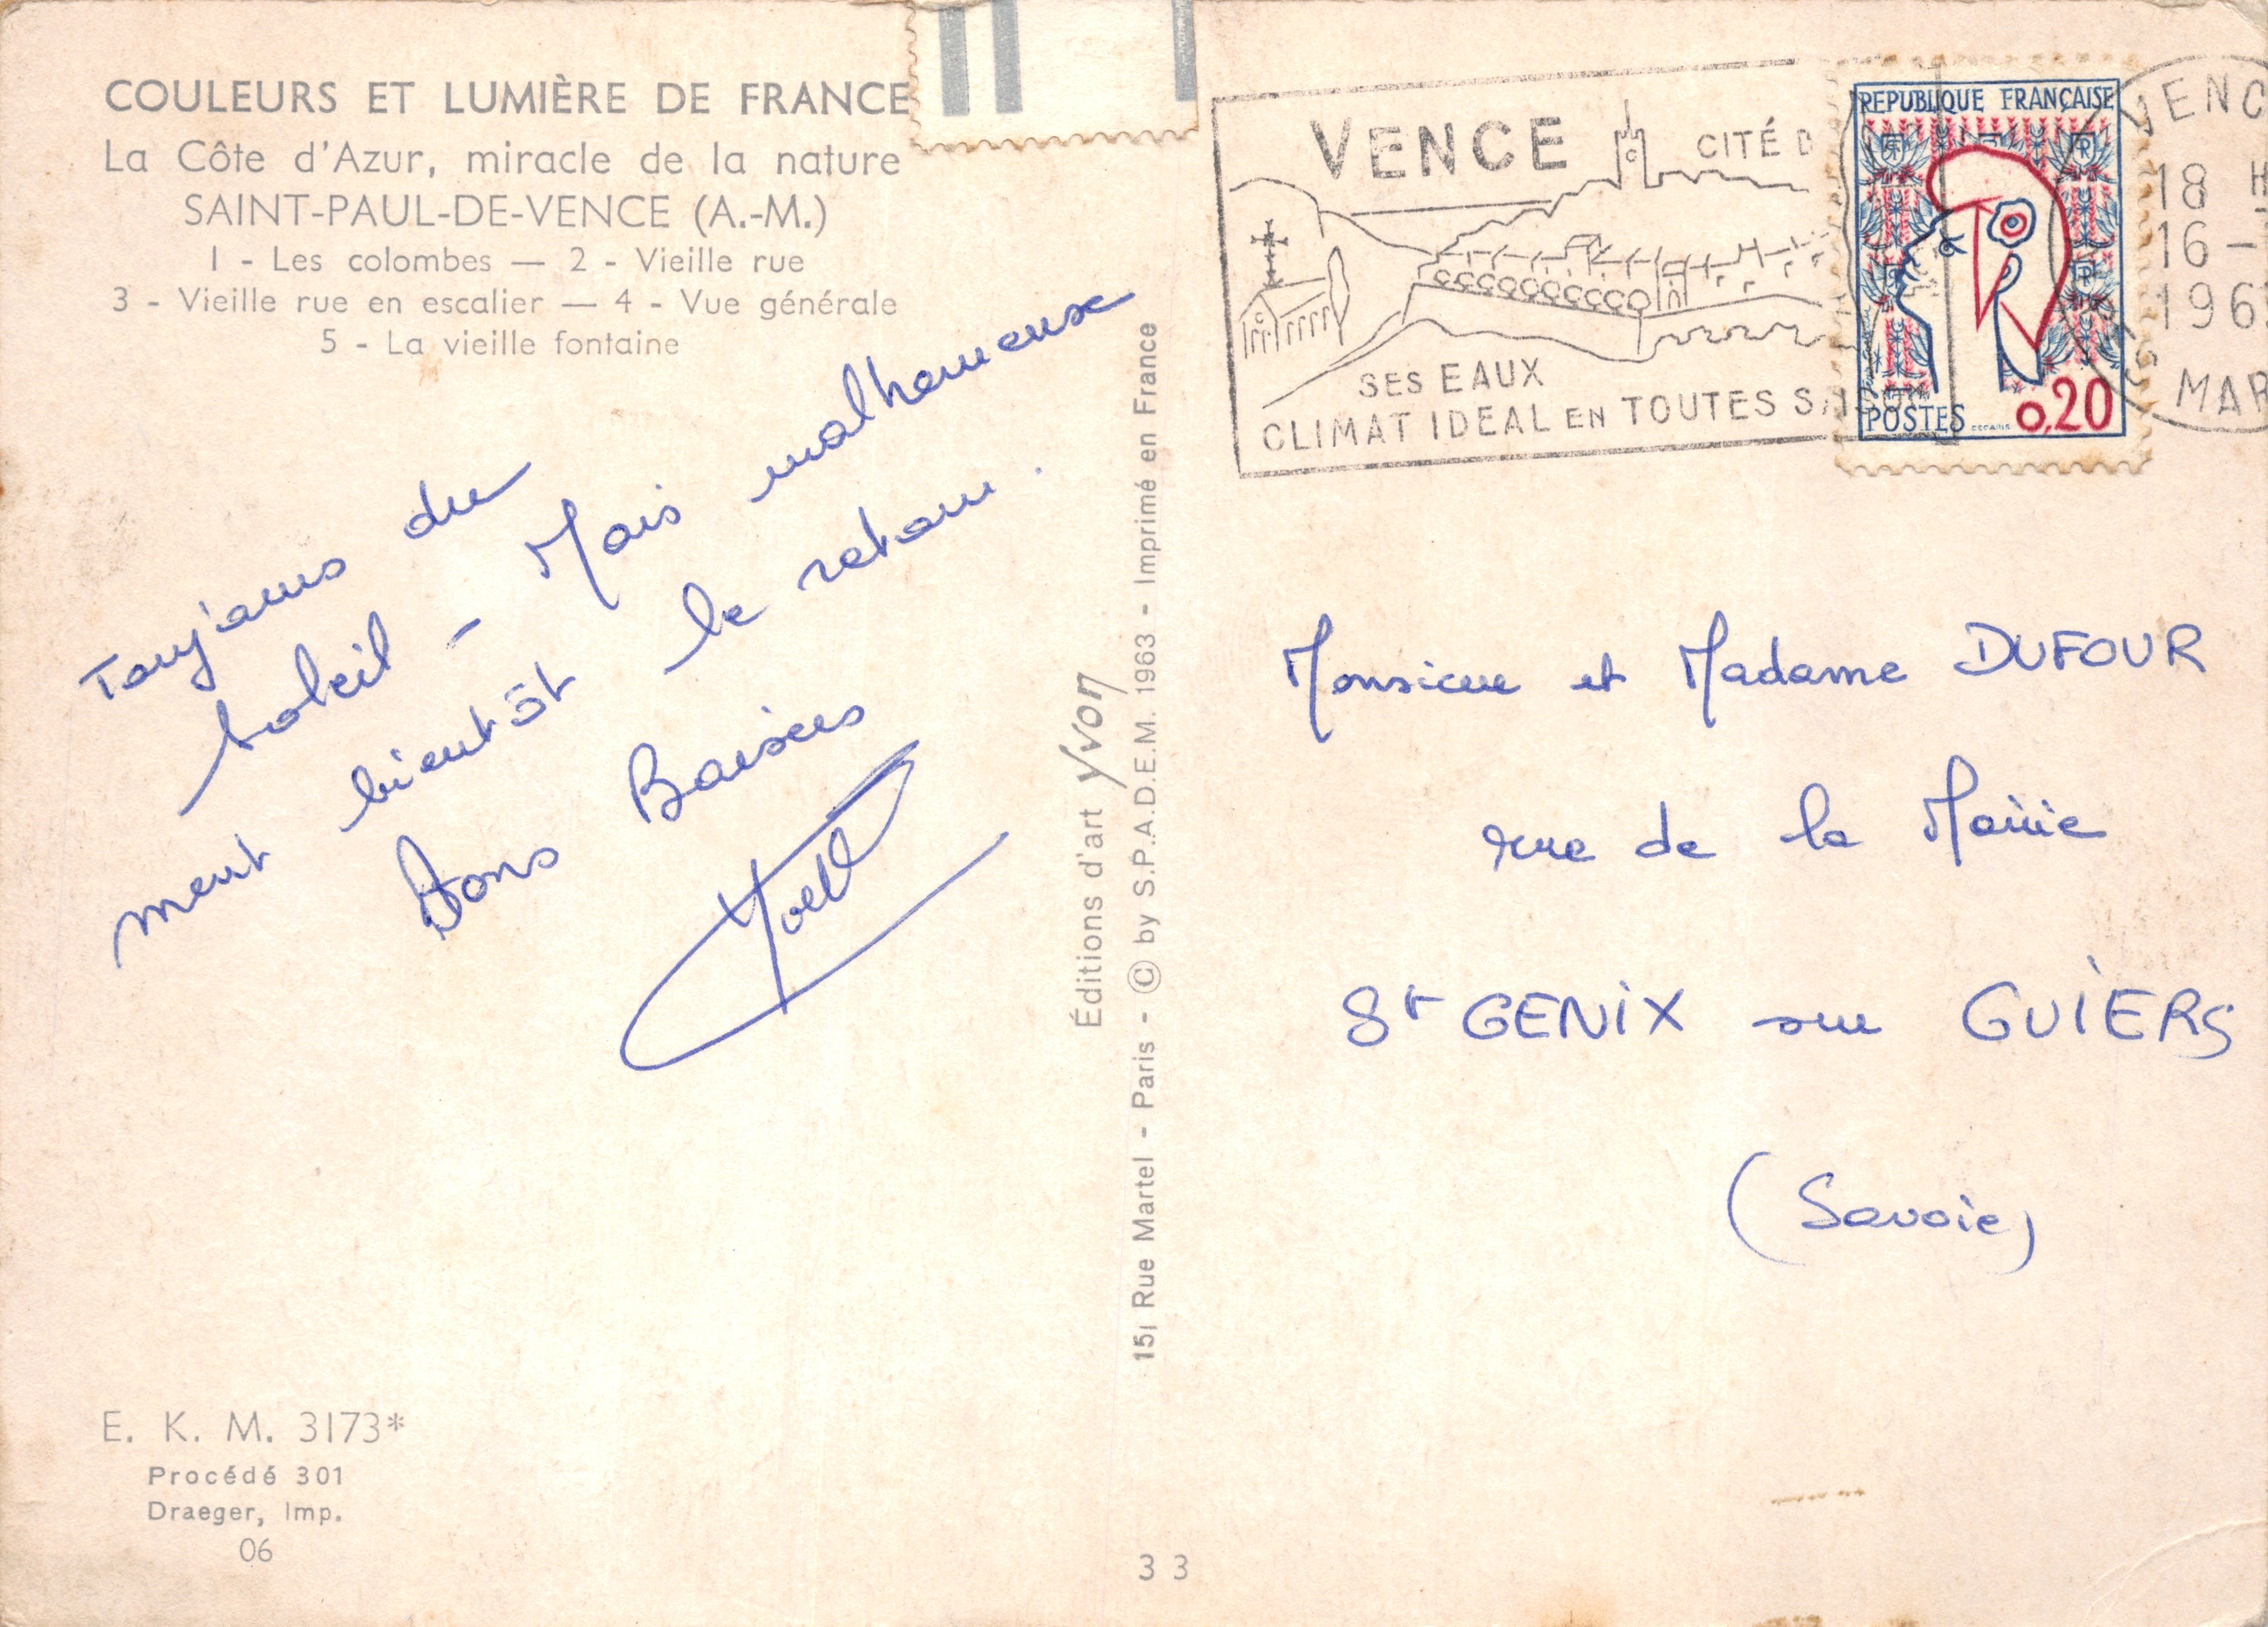 COULEURS ET LUMIÈRE DE FRANCE
La Côte d'Azur, miracle de la nature
SAINT-PAUL-DE-VENCE (A.-M.)
1 - Les colombes — 2 - Vieille rue
3 - Vieille rue en escalier — 4 - Vue générale
5 - La vieille fontaine
Toujours du
soleil - Mais malheureuse
ment bientôt le retour.
Bons Baisers
E. K. M. 3173*
Procédé 301
Draeger, Imp.
06
Éditions d'art Yvon
15, Rue Martel - Paris - © by S.P.A.D.E.M. 1963 - Imprimé en France
33
VENCE CITÉ D
SES EAUX
CLIMAT IDEAL EN TOUTES SAISONS
REPUBLIQUE FRANÇAISE
POSTES 0,20
VENC
18 H
16 -
196
MAR
Monsieur et Madame DUFOUR
rue de la Mairie
St GENIX sur GUIERS
(Savoie)